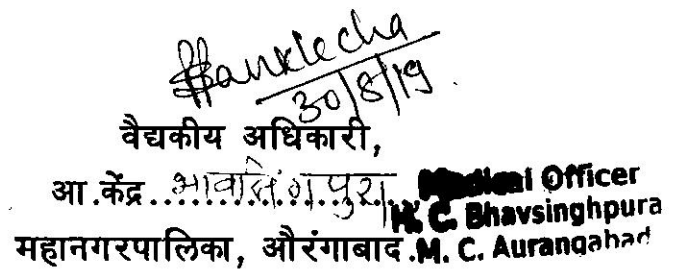 Sanklecha
30/8/19.
वैद्यकीय अधिकारी,
आ.केंद्र....भावसिंगपुरा....
Medical Officer
H. C. Bhavsinghpura
महानगरपालिका, औरंगाबाद.
M. C. Aurangabad